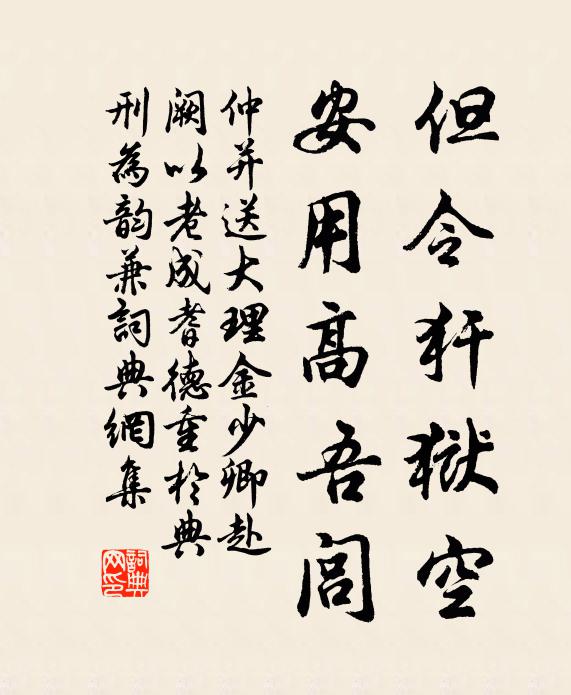 但令犴獄空
安用高吾閭
仲并送大理金少卿赴
闕以老成耆德重於典
刑為韵兼詞典網集
詞典
网印